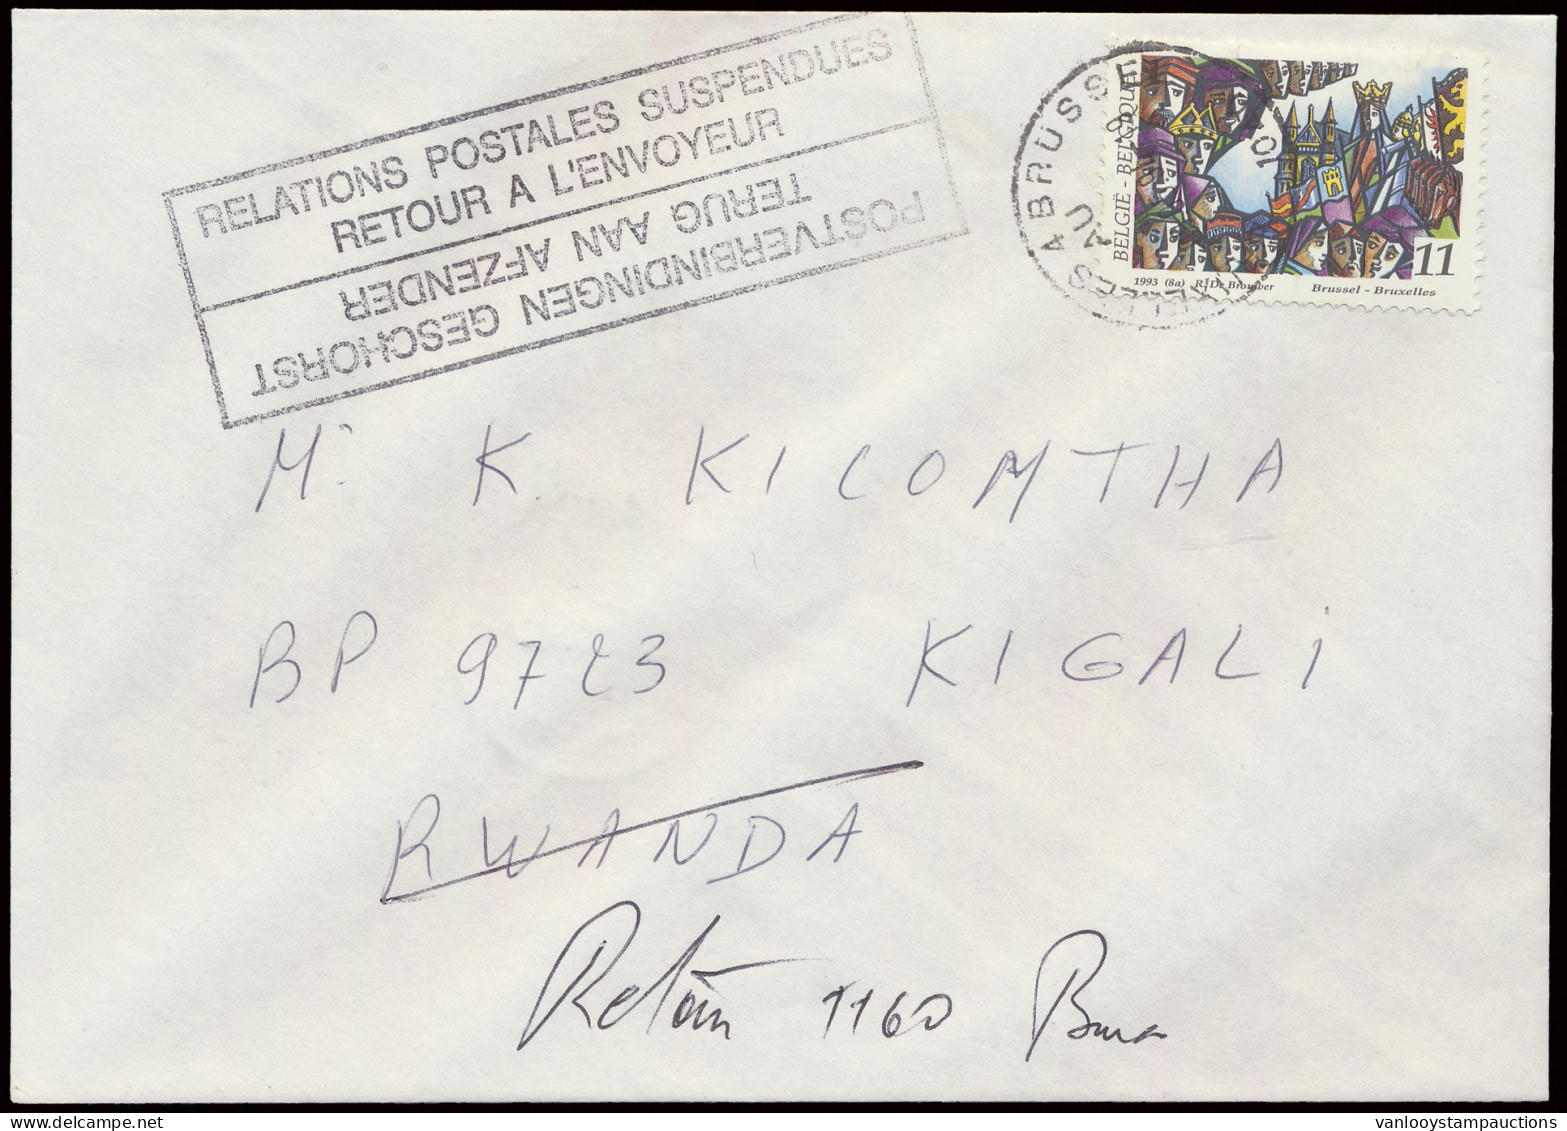 RELATIONS POSTALES SUSPENDUES
RETOUR A L'ENVOYEUR
POSTVERBINDINGEN GESCHORST
TERUG AAN AFZENDER
BELGIË - BELGIQUE
11
1993 (8a) R. De Brouwer Brussel - Bruxelles
M. K. KICOMTHA
BP 9723 KIGALI
RWANDA
Retour 1160
vanlooystampauctions